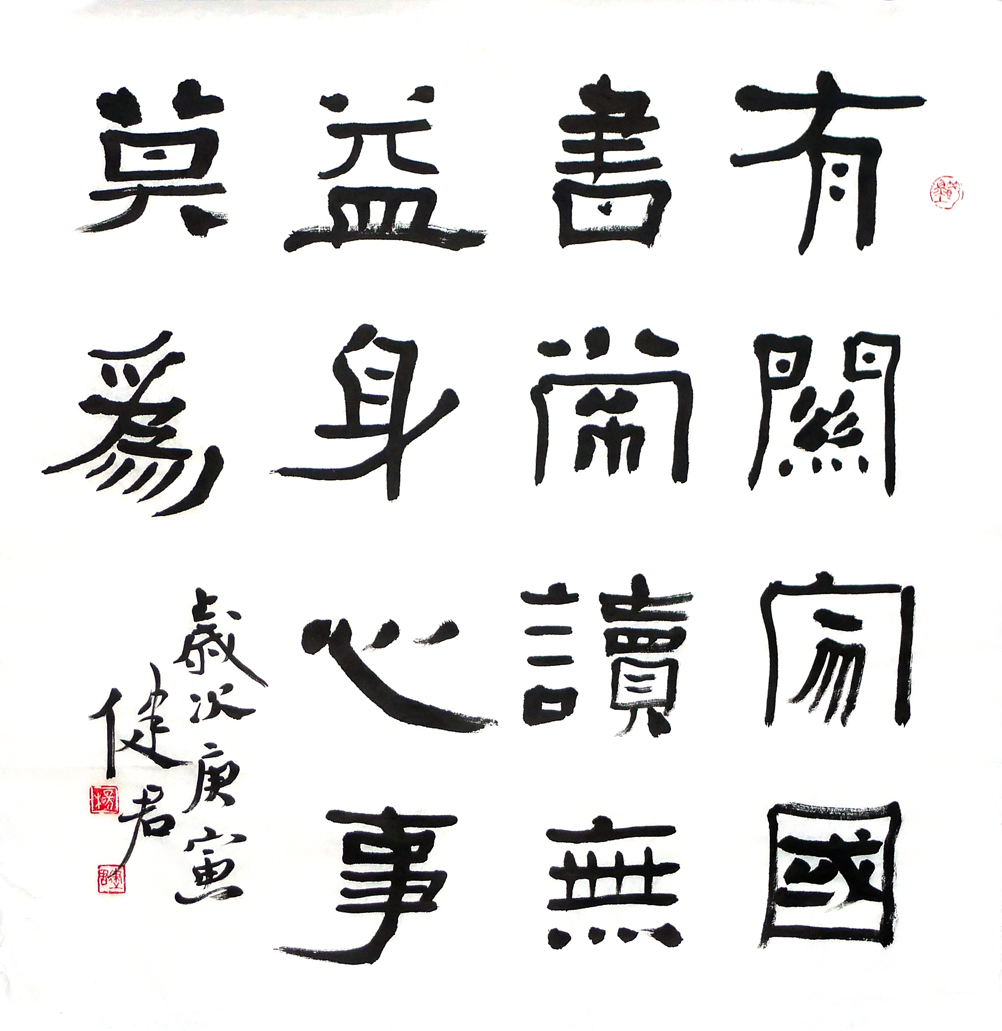 有關家國
書常讀無
益身心事
莫為
歲次庚寅
健君